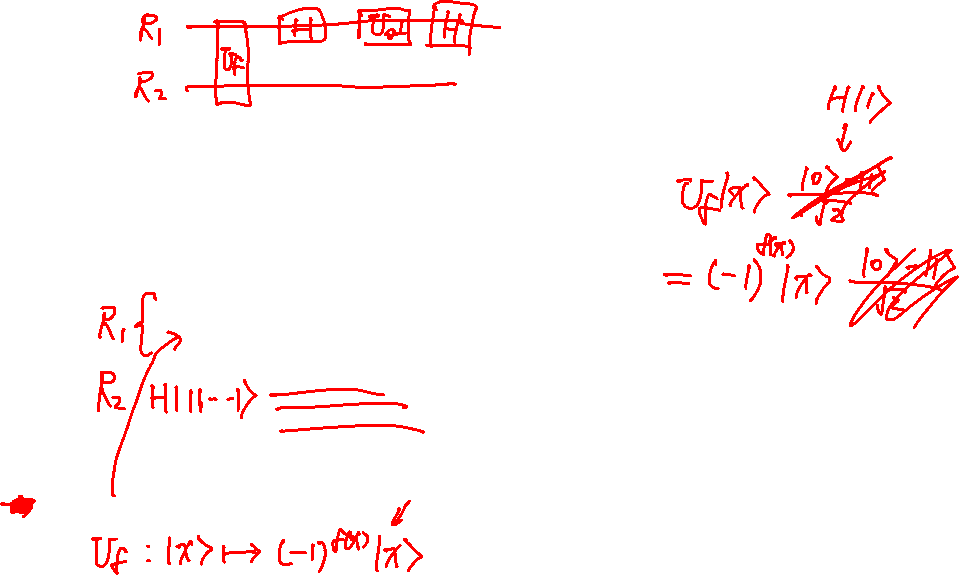 R₁ H U₀⊥ H
U_f
R₂
H|1⟩
↓
U_f|x⟩ |0⟩-|1⟩/√2
= (-1)^{f(x)} |x⟩ |0⟩-|1⟩/√2
R₁ {
R₂ H|11--1⟩
U_f : |x⟩ ↦ (-1)^{f(x)} |x⟩